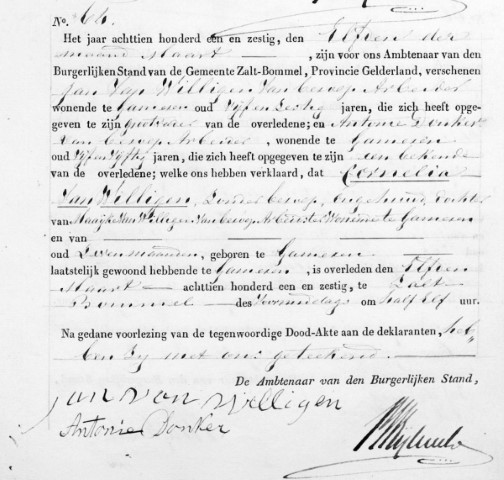 No. 64.
Het jaar achttien honderd een en zestig, den Elfden der
maand Maart, zijn voor ons Ambtenaar van den
Burgerlijken Stand van de Gemeente Zalt-Bommel, Provincie Gelderland, verschenen
Jan van Willigen van beroep Arbeider
wonende te Gameren oud Vijf en Zestig jaren, die zich heeft opge-
geven te zijn Grootvader van de overledene; en Antonie Donker
van beroep Arbeider, wonende te Gameren
oud Vijf en Vijftig jaren, die zich heeft opgegeven te zijn een bekende
van de overledene; welke ons hebben verklaard, dat Cornelia
van Willigen, Zonder beroep, ongehuwd, dochter
van Maaijke van Willigen van beroep Arbeidster Wonende te Gameren
en van
oud maanden, geboren te Gameren
laatstelijk gewoond hebbende te Gameren, is overleden den Elfden
Maart achttien honderd een en zestig, te Zalt
Bommel des Voormiddags om half Elf uur.
Na gedane voorlezing van de tegenwoordige Dood-Akte aan de deklaranten, heb
ben zij met ons geteekend.
De Ambtenaar van den Burgerlijken Stand,
Jan van Willigen
Antonie Donker